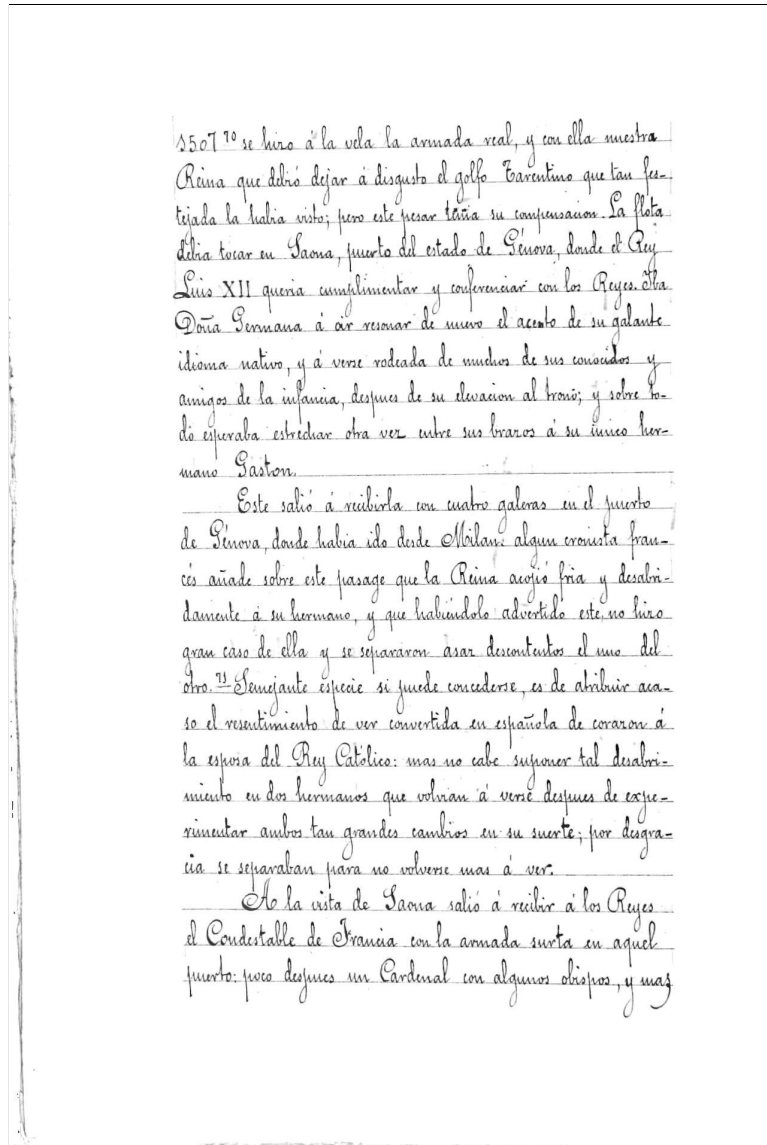 1507 70 se hizo á la vela la armada real, y con ella nuestra
Reina que debió dejar á disgusto el golfo Tarentino que tan fes-
tejada la habia visto; pero este pesar tenia su compensacion. La flota
debia tocar en Saona, puerto del estado de Génova, donde el Rey
Luis XII queria cumplimentar y conferenciar con los Reyes. Iba
Doña Germana á oir resonar de nuevo el acento de su galante
idioma nativo, y á verse rodeada de muchos de sus conocidos y
amigos de la infancia, despues de su elevacion al trono; y sobre to-
do esperaba estrechar otra vez entre sus brazos á su único her-
mano Gaston.
Este salió á recibirla con cuatro galeras en el puerto
de Génova, donde habia ido desde Milan: algun cronista fran-
cés añade sobre este pasage que la Reina acojió fria y desabri-
damente á su hermano, y que habiéndolo advertido este, no hizo
gran caso de ella y se separaron asaz descontentos el uno del
otro. 71 Semejante especie si puede concederse, es de atribuir aca-
so el resentimiento de ver convertida en española de corazon á
la esposa del Rey Católico: mas no cabe suponer tal desabri-
miento en dos hermanos que volvian á verse despues de expe-
rimentar ambos tan grandes cambios en su suerte; por desgra-
cia se separaban para no volverse mas á ver.
A la vista de Saona salió á recibir á los Reyes
el Condestable de Francia con la armada surta en aquel
puerto: poco despues un Cardenal con algunos obispos, y mas